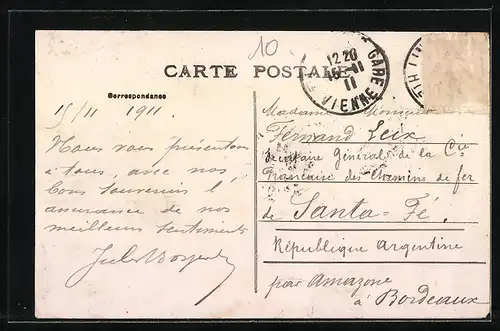 10
CARTE POSTALE
Correspondance
12 20
15-11
11
GARE
VIENNE
15/11 1911.
Nous vous présentons
à tous, avec nos
bons souvenirs l'
assurance de nos
meilleurs sentiments
Jules
Madame Monsieur
Fernand Leix
Secrétaire Général de la Cie
Française des Chemins de fer
de Santa-Fé.
République Argentine
par Amazone
à Bordeaux